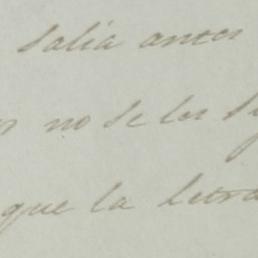 salia antes
no se les
que la letra